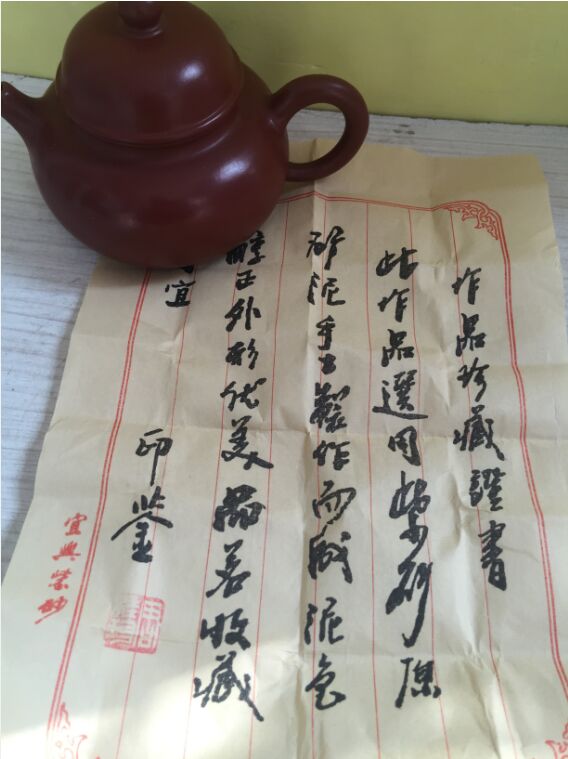 作品珍藏證書
此作品選用紫砂原
矿泥手工製作而成泥色
醇正外形优美品茗收藏
宜
印鉴
宜興紫砂